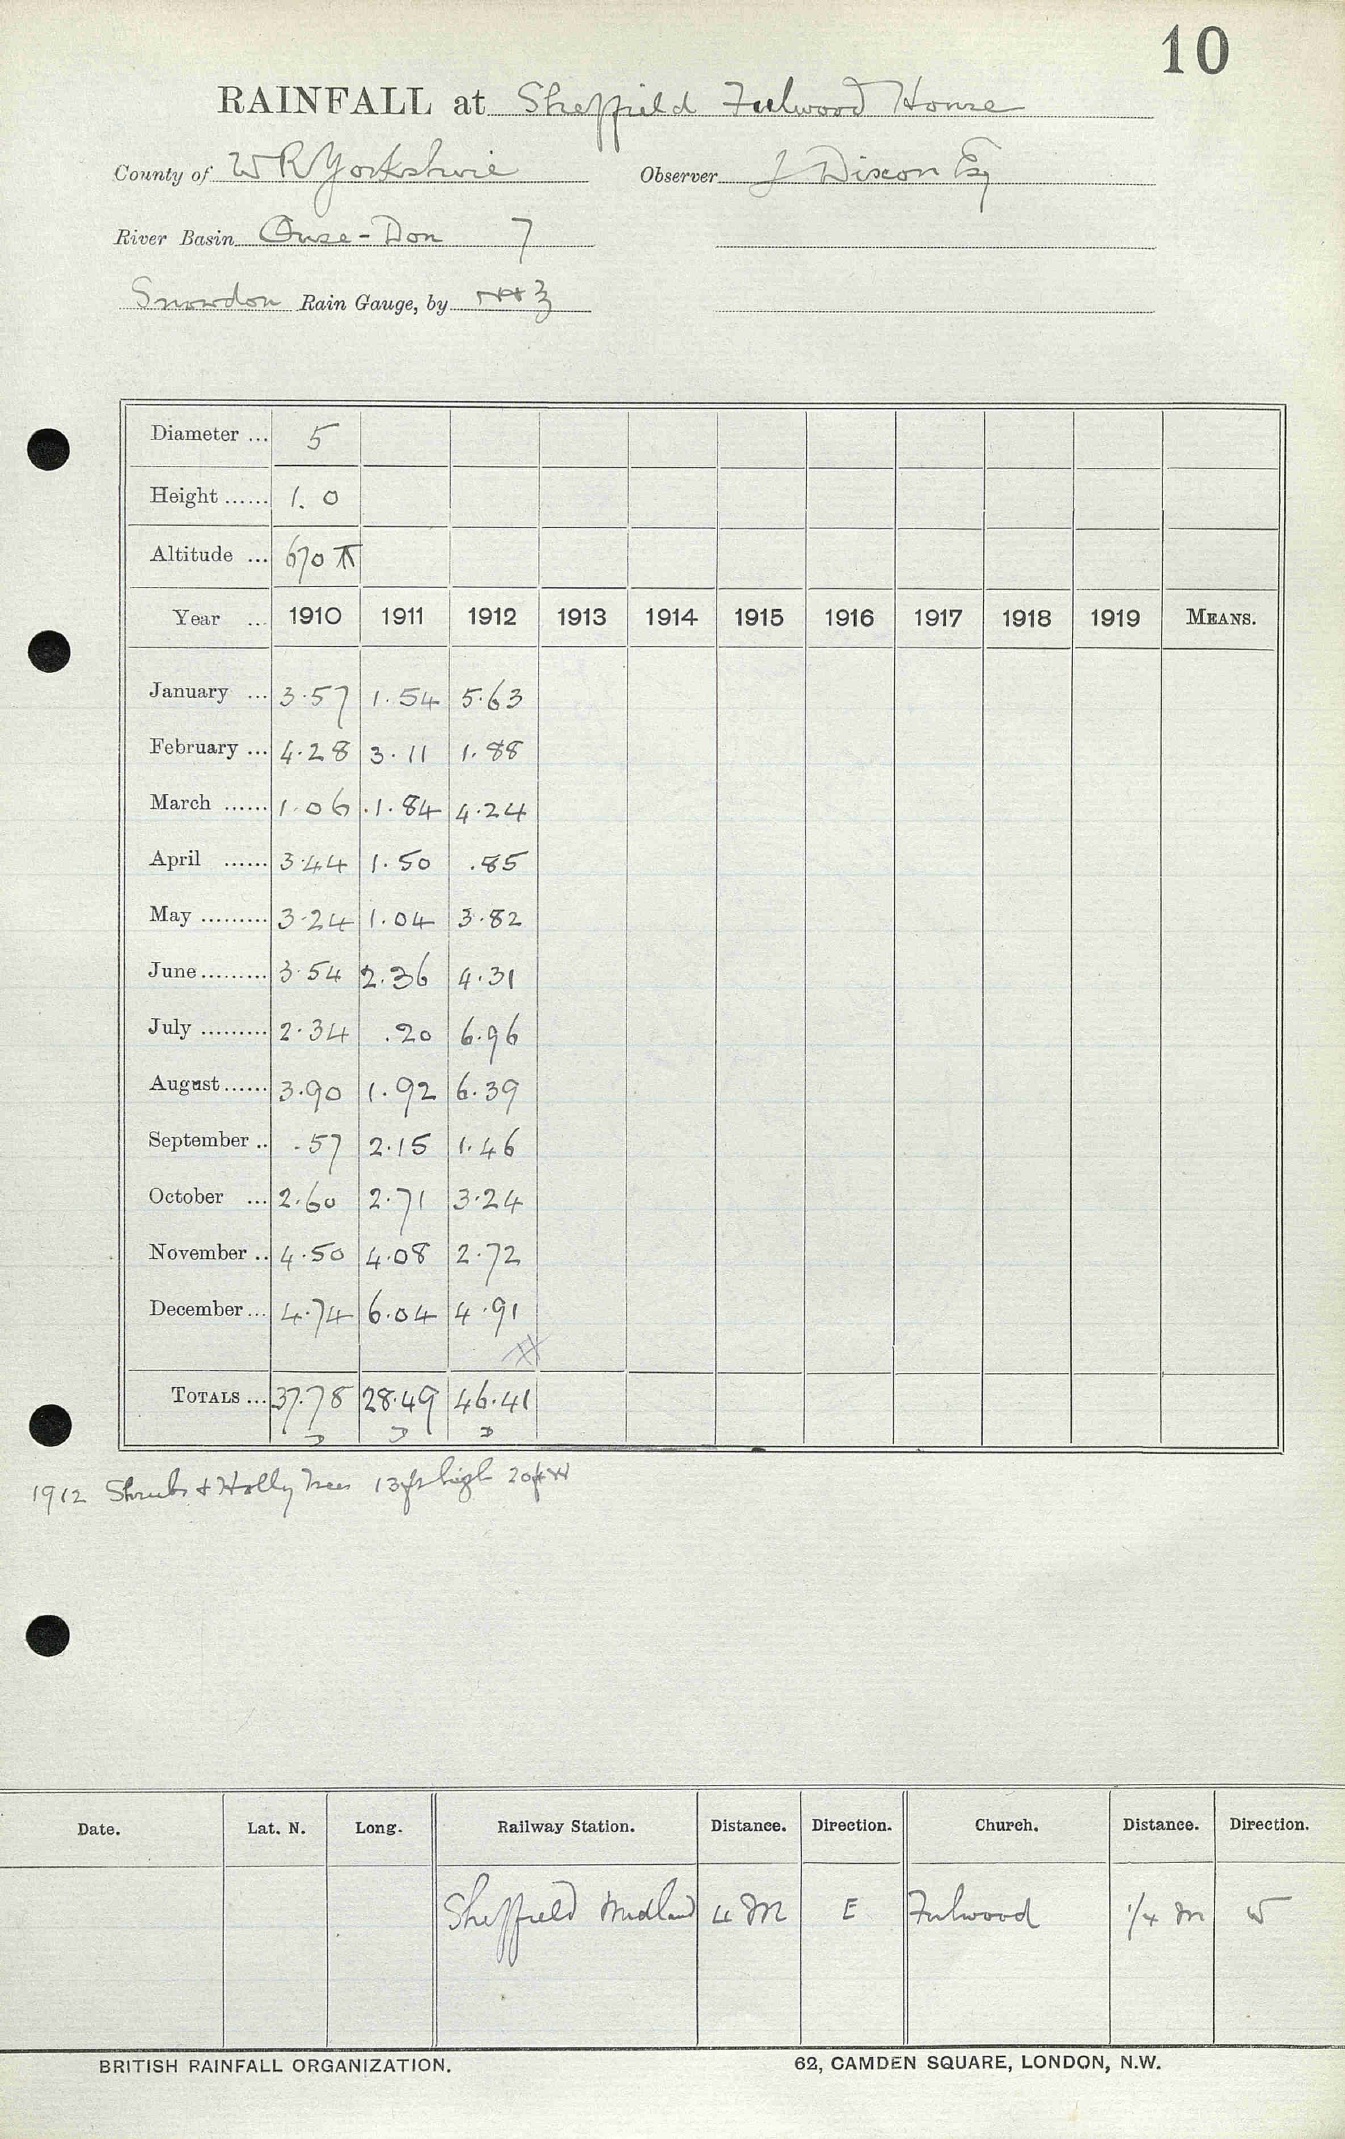 10
RAINFALL at Sheffield Fulwood House
County of W R Yorkshire Observer J Dixon Esq
River Basin Ouse-Don 7
Snowdon Rain Gauge, by
Diameter ... 5
Height ...... 1.0
Altitude ... 670
Year ... 1910 1911 1912 1913 1914 1915 1916 1917 1918 1919 MEANS.
January ... 3.57 1.54 5.63
February ... 4.28 3.11 1.88
March ...... 1.06 1.84 4.24
April ...... 3.44 1.50 .85
May ......... 3.24 1.04 3.82
June ......... 3.54 2.36 4.31
July ......... 2.34 .20 6.96
August ...... 3.90 1.92 6.39
September .. .57 2.15 1.46
October ... 2.60 2.71 3.24
November .. 4.50 4.08 2.72
December ... 4.74 6.04 4.91
TOTALS ... 37.78 28.49 46.41
1912 Shrubs & Holly Trees 13ft high 20ft
Date. Lat. N. Long. Railway Station. Distance. Direction. Church. Distance. Direction.
Sheffield Midland 4 M E Fulwood 1/4 m W
BRITISH RAINFALL ORGANIZATION. 62, CAMDEN SQUARE, LONDON, N.W.